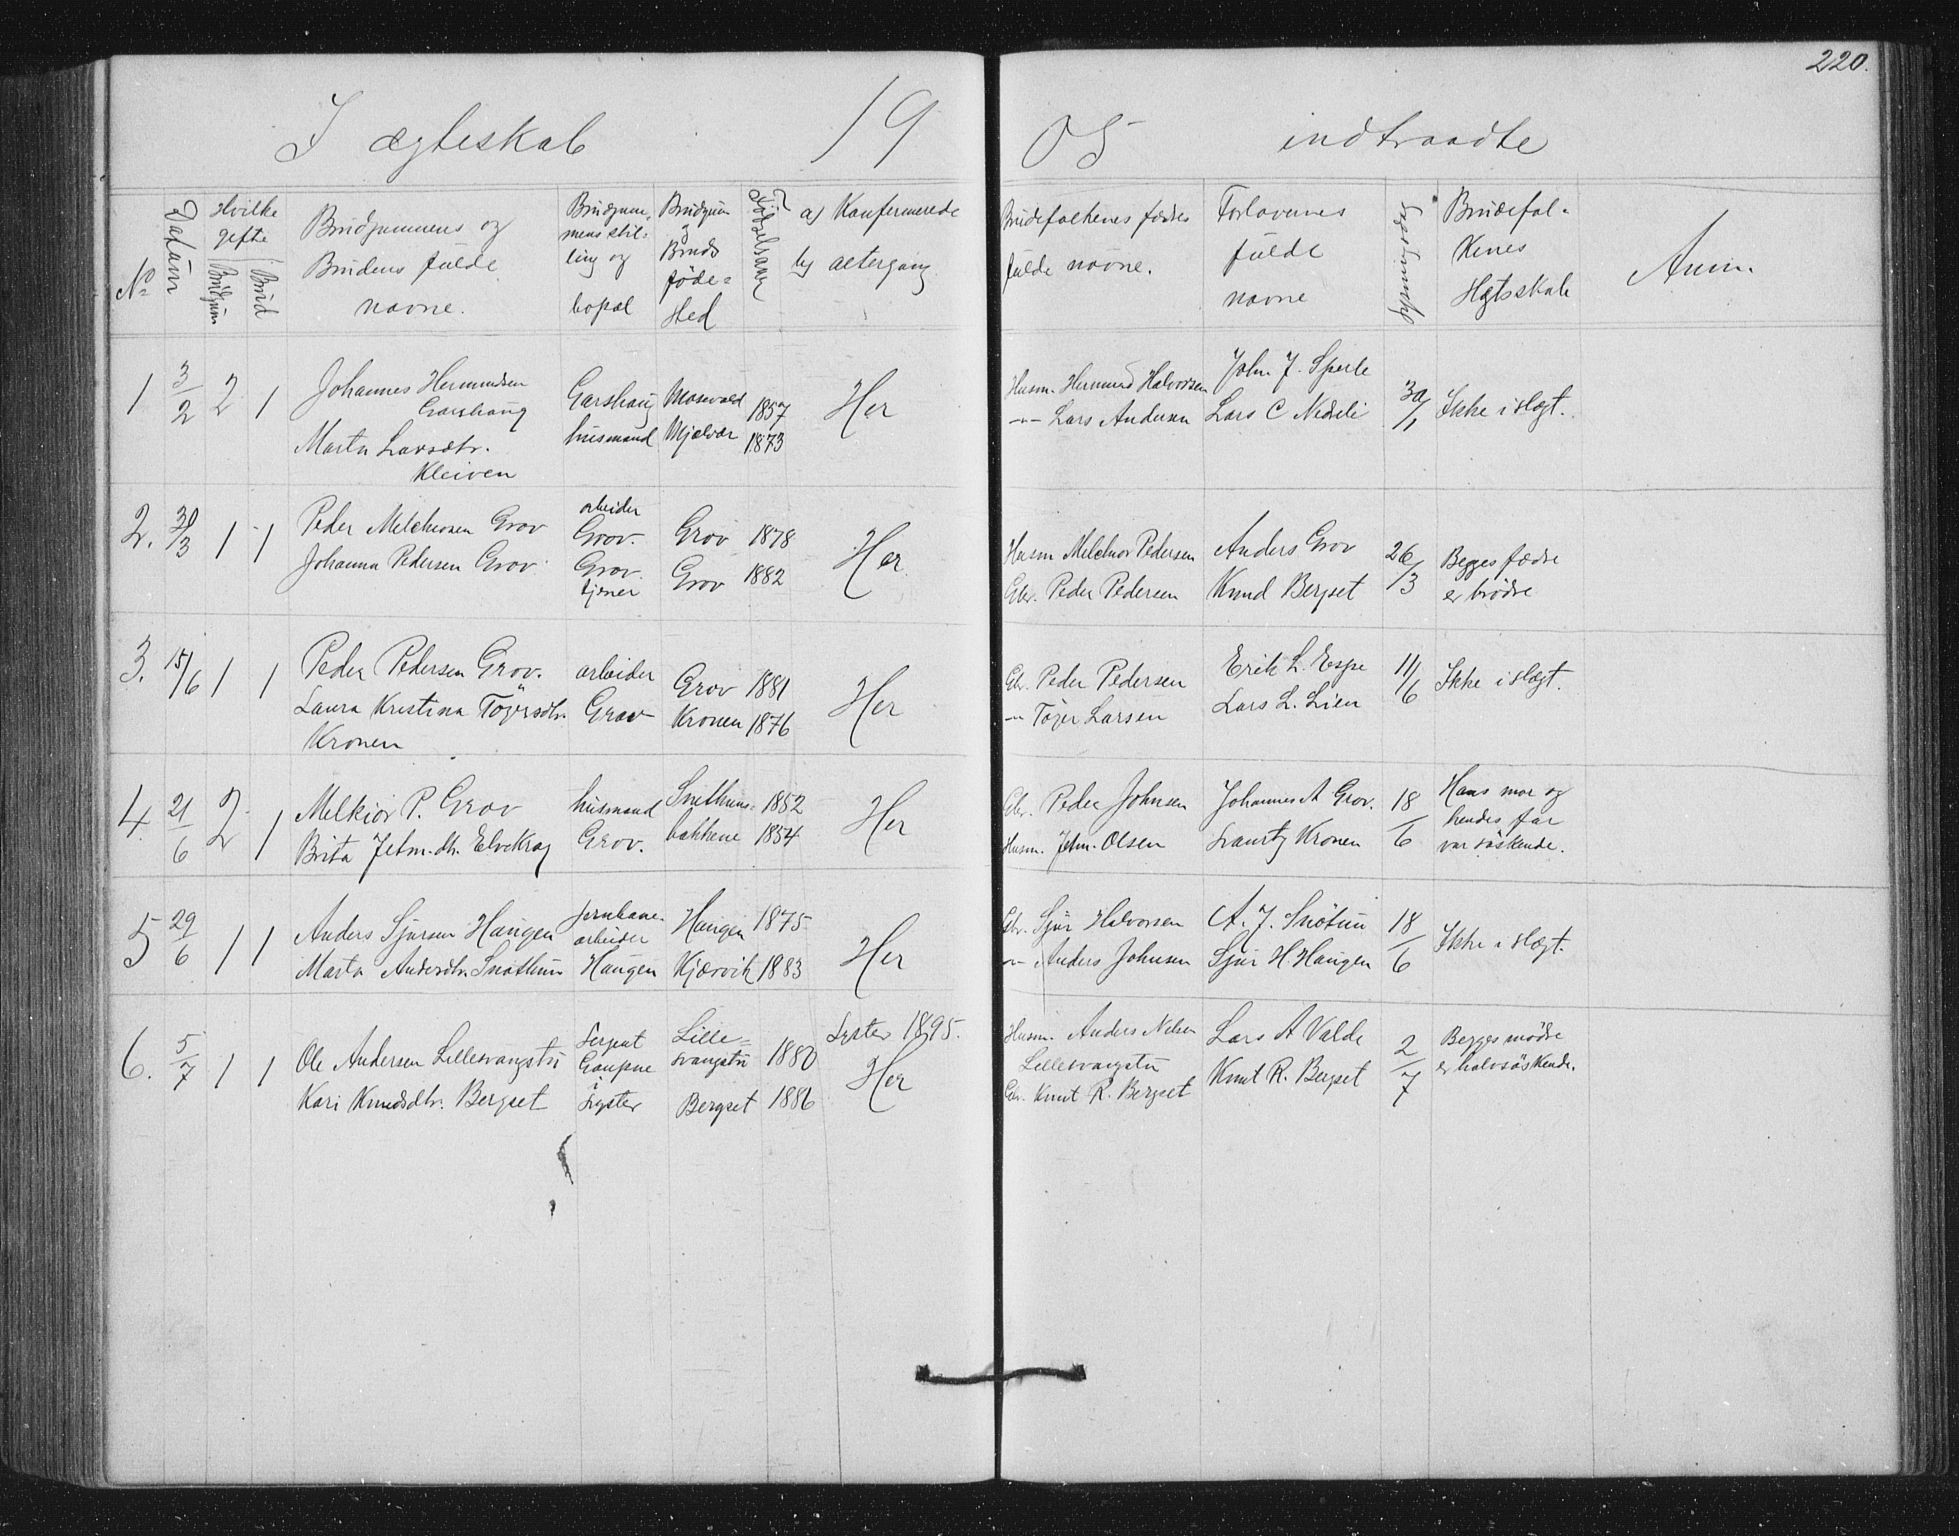 220.
I ægteskab 19 05 indtraadte
No
Datum
Hvilke gefte
Brudgum
Brud
Brudgummens og
Brudens fulde
navne.
Brudgum-
mens stil-
ling og
bopæl
Brudgum
og
Bruds
føde-
sted
Fødselsaar
a) Konfirmerede
b) altergang
Brudefolkenes fædres
fulde navne.
Forlovernes
fulde
navne
Brudefol-
kenes
Slgtsskab
Anm.
1 3/2 2 1
Johannes Hermundsen
Garshaug
Marta Larsdtr.
Kleiven
Garshaug
husmand
Mosvald
Mjelvær
1857
1873
Her
Husm. Hermund Halvorsen
-"- Lars Andersen
John J. Sperle
Lars C Nedreli
30/1
Ikke i slægt.
2. 30/3 1 1
Peder Melchiorsen Grov
Johanna Pedersen Grov
arbeider
Grov.
Grov.
tjener
Grov 1878
Grov 1882
Her
Husm Melchior Pedersen
Gbr. Peder Pedersen
Anders Grov
Knud Bergset
26/3
Begges fædre
er brødre
3. 15/6 1 1
Peder Pedersen Grov.
Laura Kristina Tögersdtr.
Kronen
arbeider
Grov
Grov 1881
Kronen 1876
Her
Gbr. Peder Pedersen
-"- Töger Larsen
Erik L. Espe
Lars L. Lien
11/6
Ikke i slægt.
4. 21/6 2 1
Melkior P. Grov
Brita Jetm.dtr. Elvekrag
husmand
Grov.
Snethuns-
bakkene
1852
1854
Her
Gbr. Peder Johnsen
Husm. Jetm. Olsen
Johannes A Grov.
Kronen
18/6
Hans mor og
hendes far
var søskende.
5 29/6 1 1
Anders Sjursen Haugen
Marta Andersdtr. Snøthun
Jernbane-
arbeider
Haugen
Haugen 1875
Kjærvik 1883
Her
Gbr. Sjur Halvorsen
-"- Anders Johnsen
A. J. Snötun
Sjur H. Haugen
18/6
Ikke i slægt.
6. 5/7 1 1
Ole Andersen Lillesvangstu
Kari Knudsdtr. Bergset
Sergent
Gaupne
i
Lyster
Lille-
svangstu 1880
Bergset 1886
Lyster 1895.
Her
Husm. Anders Nelsen
Lillesvangstu
Gbr. Knut R. Bergset
Lars A Valde
Knut R. Bergset
2/7
Begges mødre
er halvsøskende.